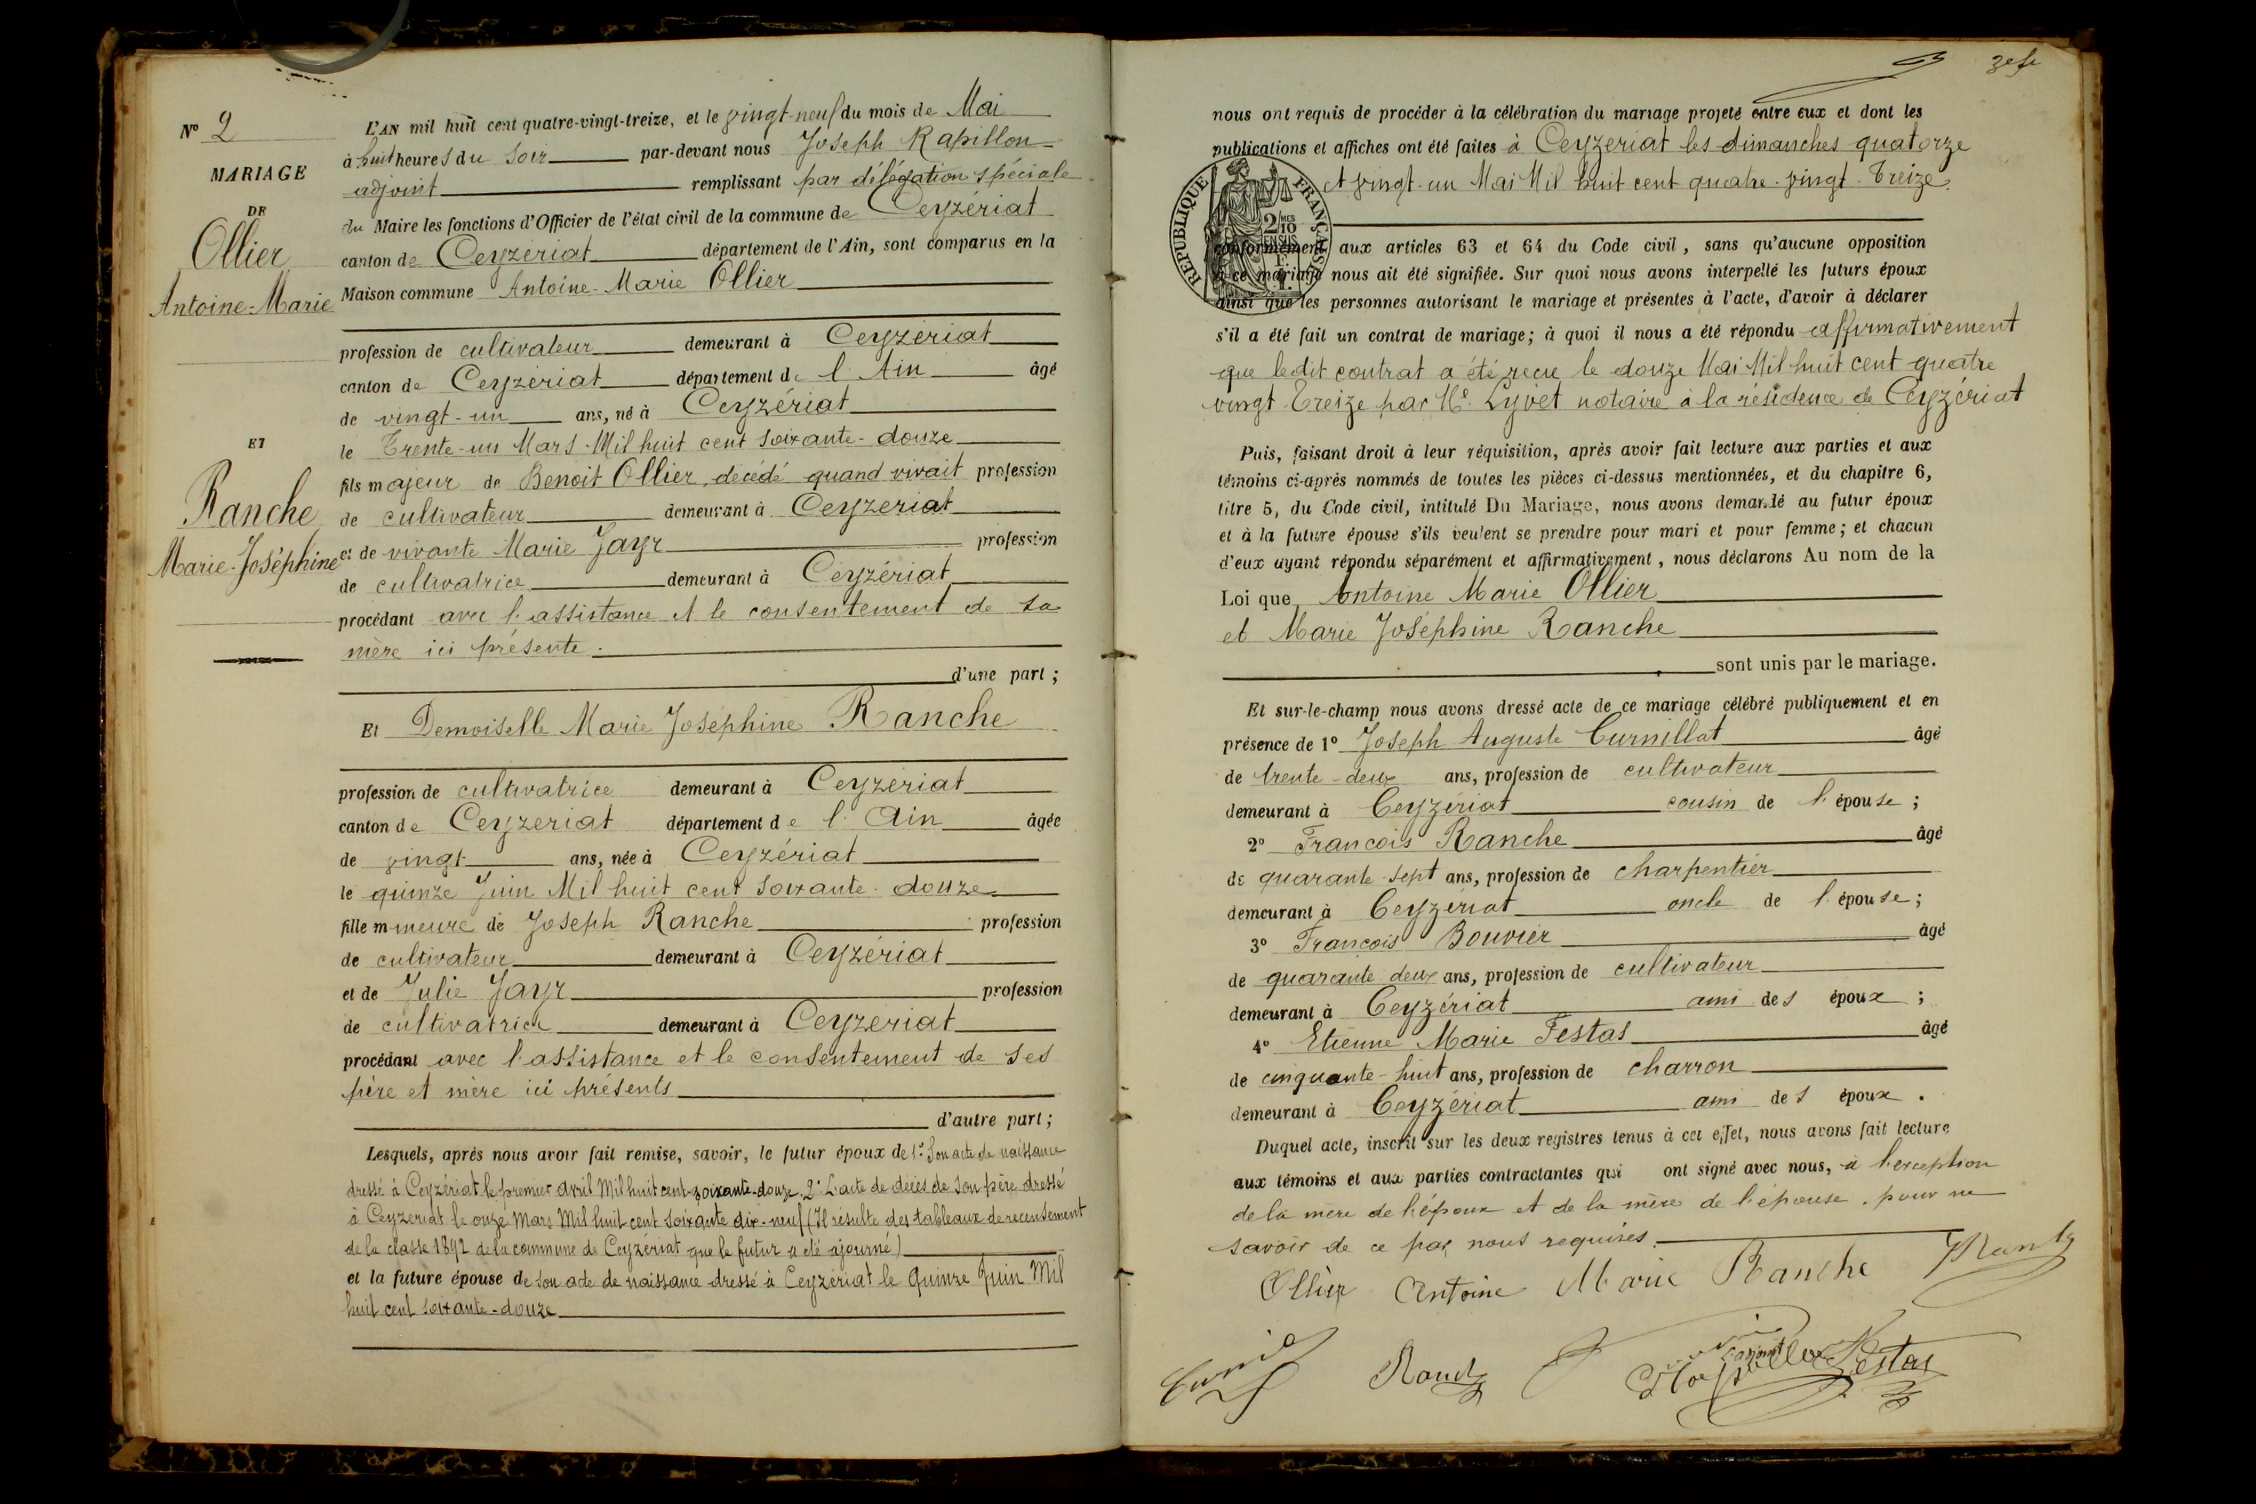 N° 2
MARIAGE
DE
Ollier
Antoine-Marie
ET
Ranche
Marie-Joséphine
L'AN mil huit cent quatre-vingt-treize, et le vingt-neuf du mois de Mai
à huit heures du soir par-devant nous Joseph Rapillon
adjoint remplissant par délégation spéciale
du Maire les fonctions d'Officier de l'état civil de la commune de Ceyzériat
canton de Ceyzériat département de l'Ain, sont comparus en la
Maison commune Antoine-Marie Ollier
profession de cultivateur demeurant à Ceyzériat
canton de Ceyzériat département de l'Ain âgé
de vingt-un ans, né à Ceyzériat
le Trente-un Mars Mil huit cent soixante-douze
fils majeur de Benoit Ollier, décédé quand vivait profession
de cultivateur demeurant à Ceyzériat
et de vivante Marie Jayr profession
de cultivatrice demeurant à Ceyzériat
procédant avec l'assistance et le consentement de sa
mère ici présente.
d'une part ;
Et Demoiselle Marie Joséphine Ranche
profession de cultivatrice demeurant à Ceyzériat
canton de Ceyzériat département de l'Ain âgée
de vingt ans, née à Ceyzériat
le quinze Juin Mil huit cent soixante-douze
fille mineure de Joseph Ranche profession
de cultivateur demeurant à Ceyzériat
et de Julie Jayr profession
de cultivatrice demeurant à Ceyzériat
procédant avec l'assistance et le consentement de ses
père et mère ici présents
d'autre part ;
Lesquels, après nous avoir fait remise, savoir, le futur époux de 1° Son acte de naissance
dressé à Ceyzériat le premier avril Mil huit cent-soixante-douze, 2° L'acte de décès de son père dressé
à Ceyzériat le onze Mars Mil huit cent soixante dix-neuf (Il résulte des tableaux de recensement
de la classe 1892 de la commune de Ceyzériat que le futur a été ajourné)
et la future épouse de son acte de naissance dressé à Ceyzériat le Quinze Juin Mil
huit cent soixante-douze
nous ont requis de procéder à la célébration du mariage projeté entre eux et dont les
publications et affiches ont été faites à Ceyzériat les dimanches quatorze
et vingt-un Mai Mil huit cent quatre-vingt-Treize.
RÉPUBLIQUE FRANÇAISE
2/10 MES EN SUS
1 F.
conformément aux articles 63 et 64 du Code civil, sans qu'aucune opposition
à ce mariage nous ait été signifiée. Sur quoi nous avons interpellé les futurs époux
ainsi que les personnes autorisant le mariage et présentes à l'acte, d'avoir à déclarer
s'il a été fait un contrat de mariage ; à quoi il nous a été répondu affirmativement
que ledit contrat a été reçu le douze Mai Mil huit cent quatre
vingt-Treize par Me Lyvet notaire à la résidence de Ceyzériat
Puis, faisant droit à leur réquisition, après avoir fait lecture aux parties et aux
témoins ci-après nommés de toutes les pièces ci-dessus mentionnées, et du chapitre 6,
titre 5, du Code civil, intitulé Du Mariage, nous avons demandé au futur époux
et à la future épouse s'ils veulent se prendre pour mari et pour femme ; et chacun
d'eux ayant répondu séparément et affirmativement, nous déclarons Au nom de la
Loi que Antoine Marie Ollier
et Marie Joséphine Ranche
sont unis par le mariage.
Et sur-le-champ nous avons dressé acte de ce mariage célébré publiquement et en
présence de 1° Joseph Auguste Curnillat âgé
de trente-deux ans, profession de cultivateur
demeurant à Ceyzériat cousin de l'épouse ;
2° Francois Ranche âgé
de quarante-sept ans, profession de charpentier
demeurant à Ceyzériat oncle de l'épouse ;
3° François Bouvier âgé
de quarante deux ans, profession de cultivateur
demeurant à Ceyzériat ami des époux ;
4° Etienne Marie Festas âgé
de cinquante-huit ans, profession de charron
demeurant à Ceyzériat ami des époux.
Duquel acte, inscrit sur les deux registres tenus à cet effet, nous avons fait lecture
aux témoins et aux parties contractantes qui ont signé avec nous, à l'exception
de la mère de l'époux et de la mère de l'épouse, pour ne
savoir de ce par nous requises.
Ollier Antoine Marie Ranche
Festas